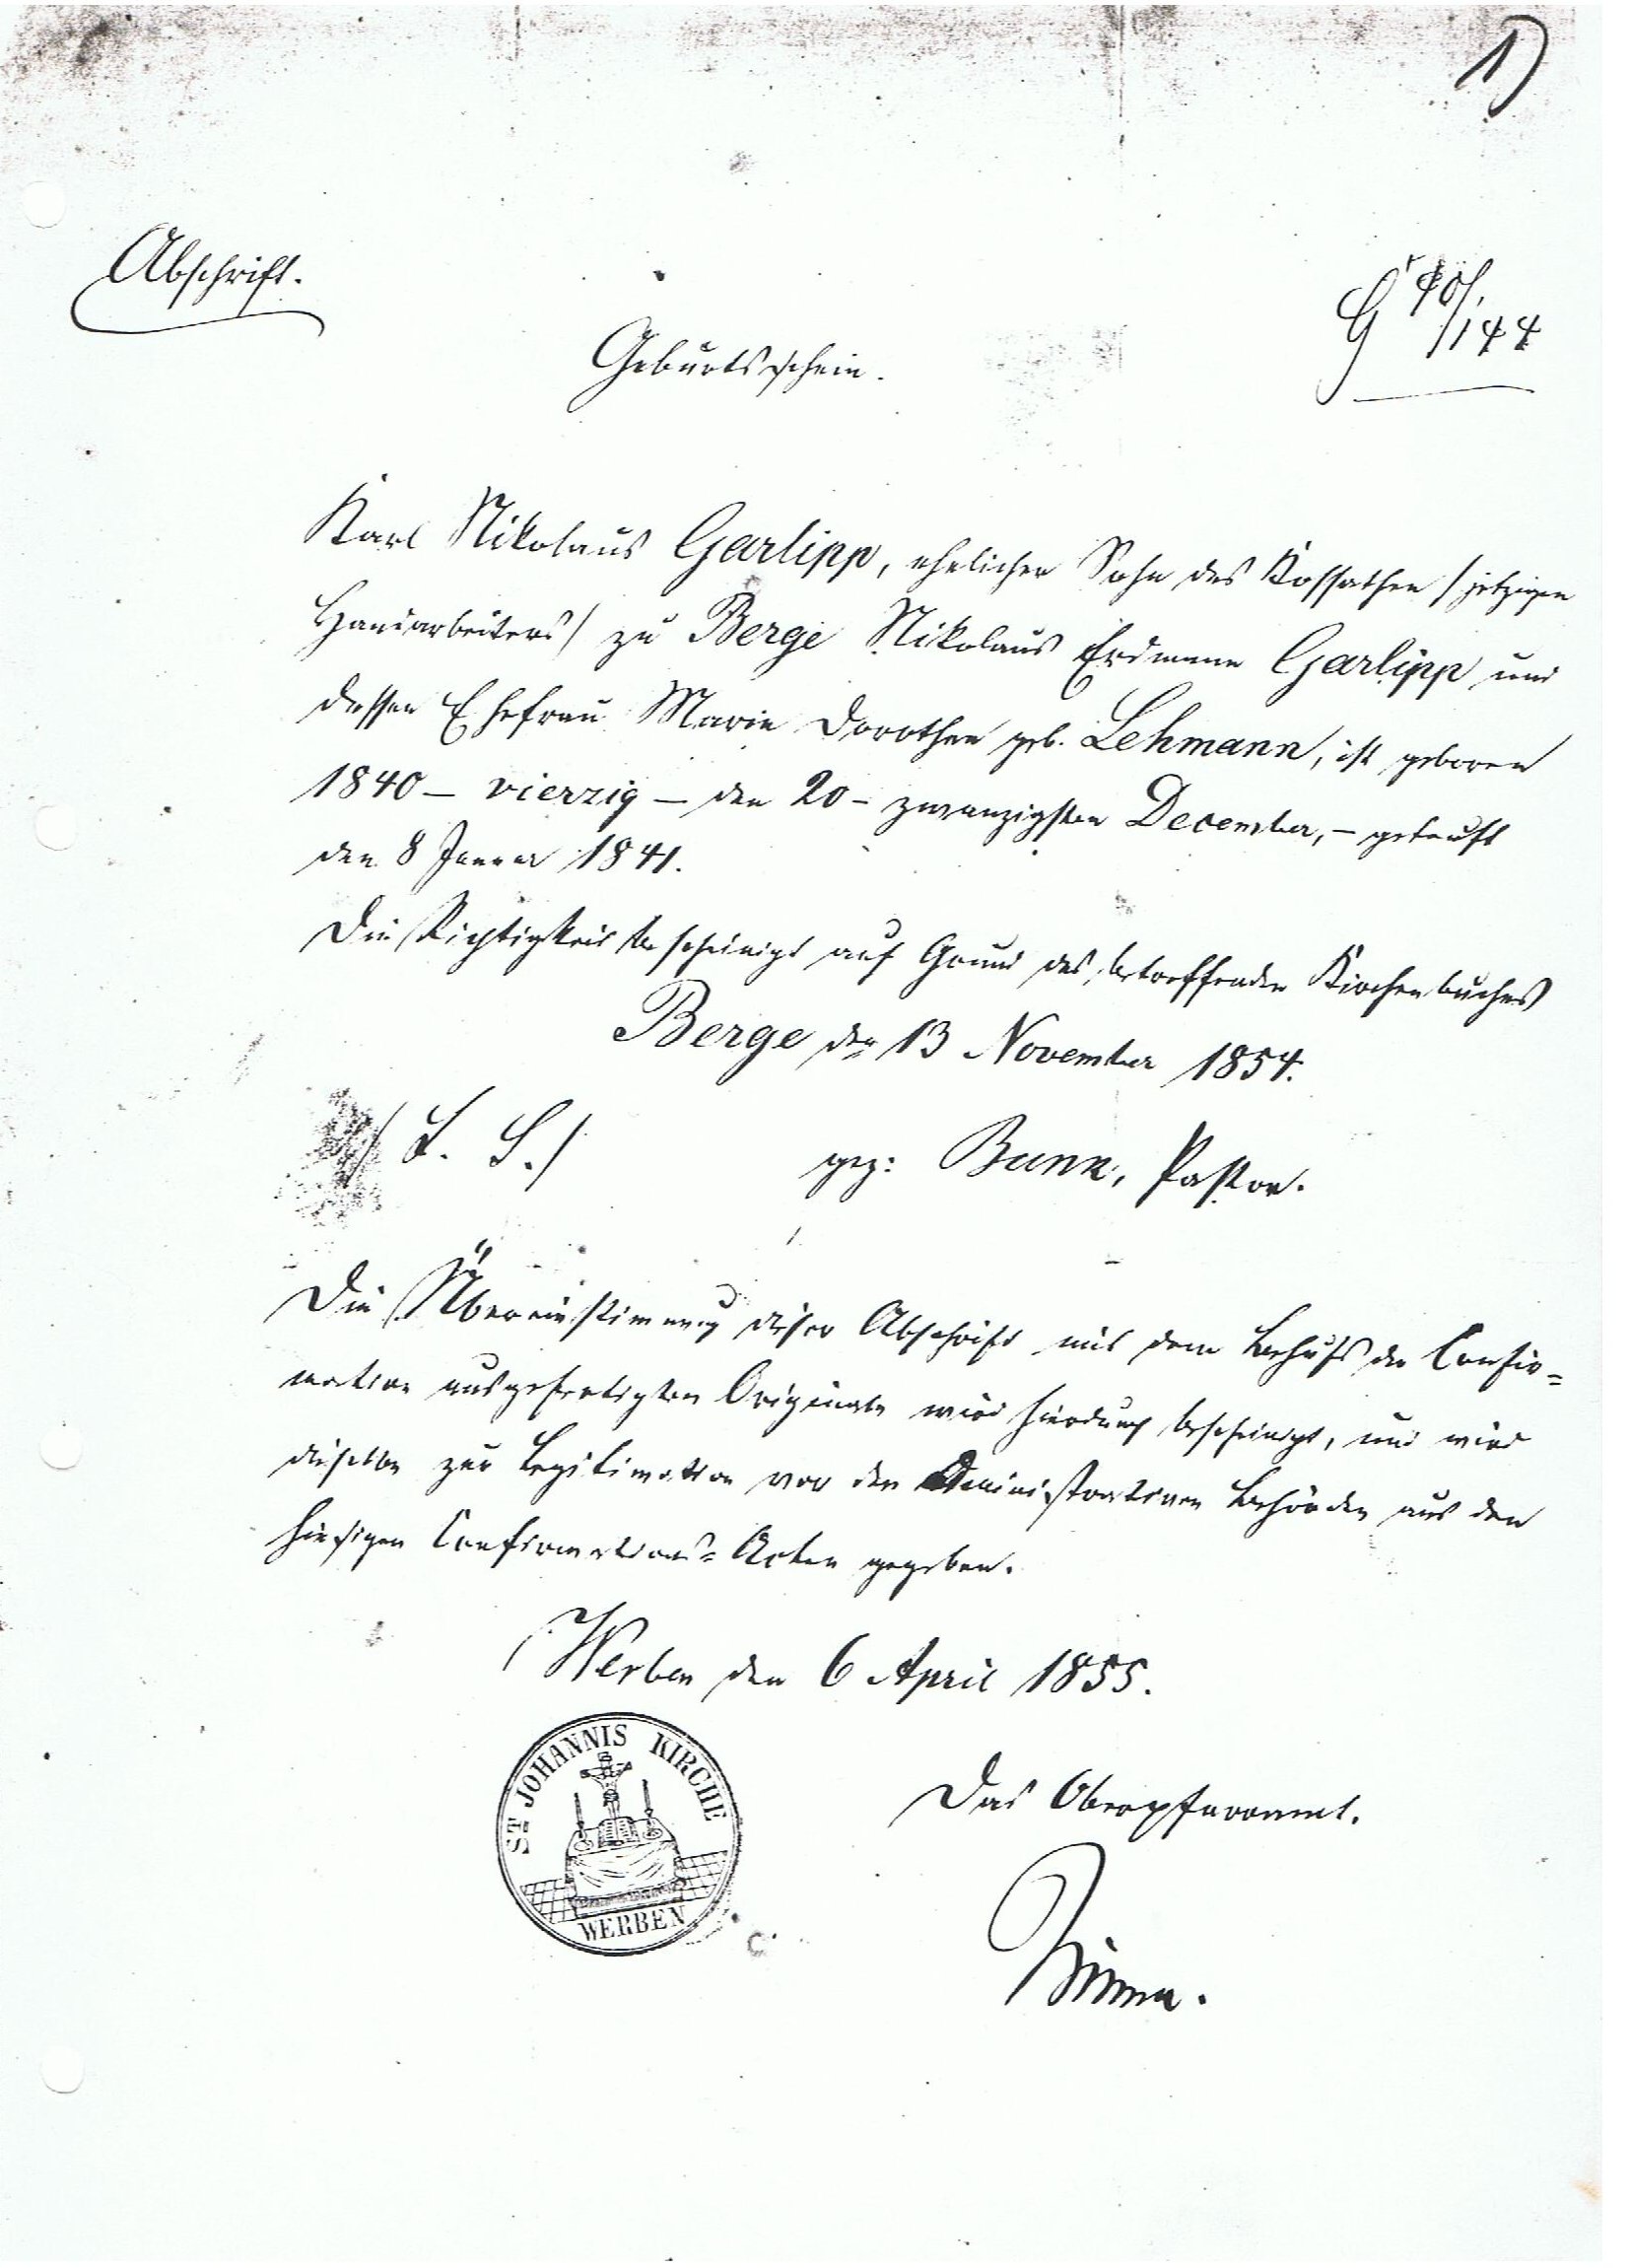 1)
Abschrift.
G 40/144
Geburtsschein.
Karl Nikolaus Garlipp, ehelicher Sohn des Kossathen /jetzigen
Handarbeiters/ zu Berge Nikolaus Erdmann Garlipp und
dessen Ehefrau Marie Dorothee geb. Lehmann, ist geboren
1840 – vierzig – den 20 – zwanzigsten December, – getauft
den 8 Januar 1841.
Die Richtigkeit bescheinigt auf Grund des betreffenden Kirchenbuches
Berge den 13 November 1854.
/L. S./
gez: Bunn, Pastor.
Die Übereinstimmung dieser Abschrift mit dem behufs der Confir=
mation ausgefertigten Originale wird hierdurch bescheinigt, und wird
dieselbe zur Legitimation vor den Administrativen Behörden aus den
hiesigen Confirmations=Acten gegeben.
Werben den 6 April 1855.
ST JOHANNIS KIRCHE
WERBEN
Das Oberpfarramt.